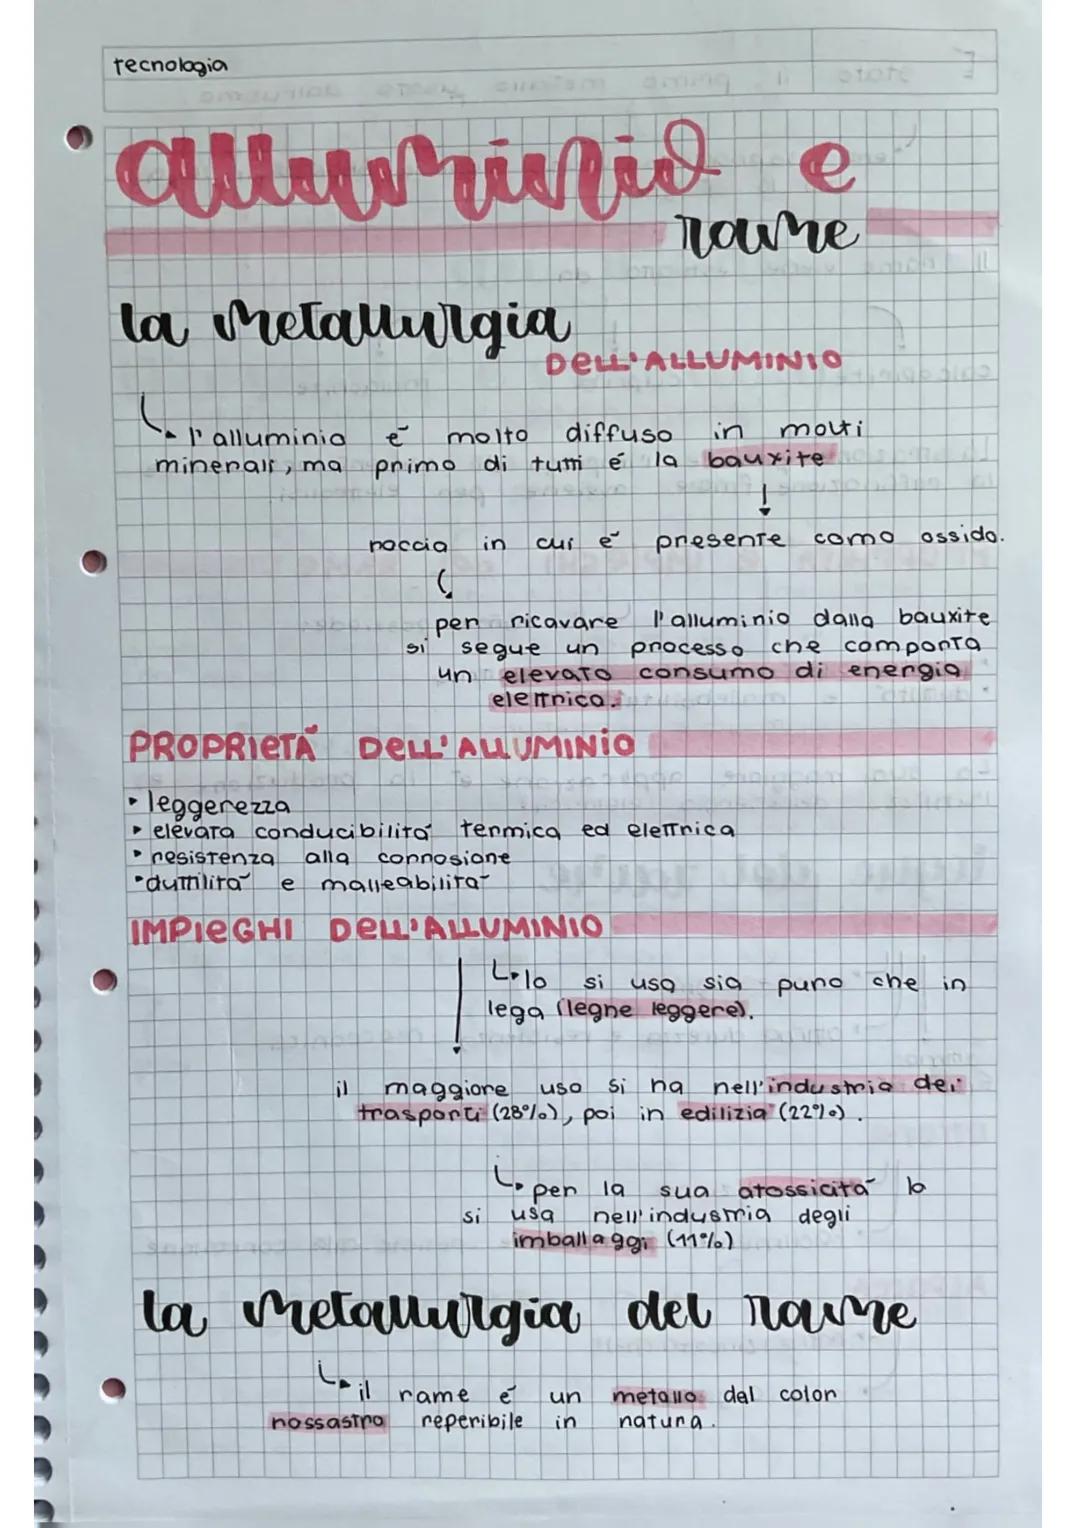 tecnologia
alluminio e
rame
la metallurgia
DELL'ALLUMINIO
l'alluminio è molto diffuso in molti
minerali, ma primo di tutti é la bauxite
roccia in cui è presente como ossido.
per ricavare l'alluminio dalla bauxite
si segue un processo che comporta
un elevato consumo di energia
elettrica.
PROPRIETÀ DELL'ALLUMINIO
• leggerezza
• elevata conducibilità termica ed elettrica
• resistenza alla corrosione
• duttilità e malleabilità
IMPIEGHI DELL'ALLUMINIO
lo si usa sia puro che in
lega (leghe leggere).
il maggiore uso si ha nell'industria dei
trasporti (28%), poi in edilizia (22%).
per la sua atossicità lo
si usa nell'industria degli
imballaggi (11%)
la metallurgia del rame
il rame é un metallo dal color
rossastro reperibile in natura.